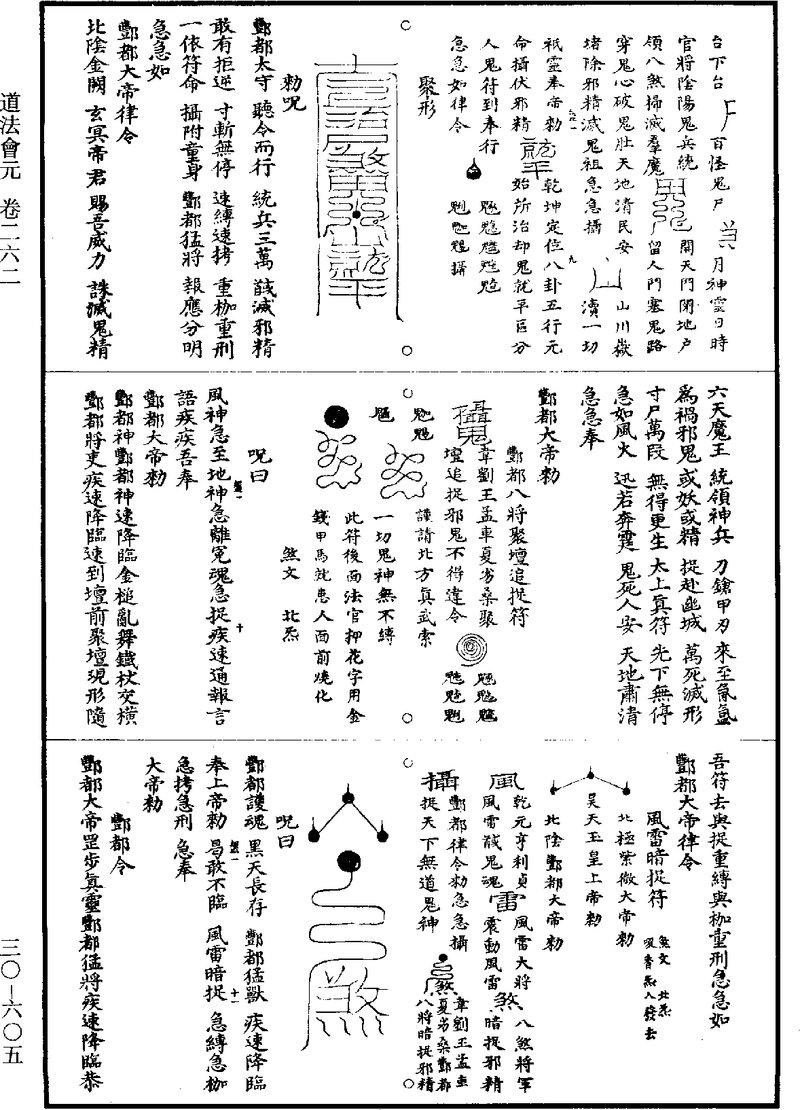 道法會元 卷二六二
三〇—六〇五
台下台 百怪鬼尸 月神霊日時
官將陰陽鬼兵統 開天門閉地戶
領八煞掃滅羣魔 留人門塞鬼路
穿鬼心破鬼肚天地清民安 山川嶽
堵除邪精滅鬼祖急急攝 瀆一切
祇靈奉帝勑 乾坤定位八卦五行元
命攝伏邪精 始所治却鬼就平區分
人鬼符到奉行
急急如律令
聚形
勑呪
酆都大守 聽令而行 統兵三萬 馘滅邪精
敢有拒逆 寸斬無停 速縛速拷 重枷重刑
一依符命 攝附童身 酆都猛將 報應分明
急急如
酆都大帝律令
北陰金闕 玄冥帝君 賜吾威力 誅滅鬼精
六天魔王 統領神兵 刀鎗甲刃 來至氤氳
爲禍邪鬼 或妖或精 捉赴酆城 萬死滅形
寸尸萬段 無得更生 太上真符 光下無停
急如風火 迅若奔霆 鬼死人安 天地肅清
急急奉
酆都大帝勑
酆都八將聚壇追捉符
韋劉王孟車夏㚥桑聚
壇追捉邪鬼不得違令
謹請北方真武索
一切鬼神無不縛
此符後面法官押花字用金
錢甲馬就患人面前燒化
煞文 北炁
呪曰
風神急至地神急離冤魂急捉疾速通報言
語疾疾吾奉
酆都大帝勑
酆都神酆都神速降臨金槌亂舞鐵杖交橫
酆都將吏疾速降臨速到壇前聚壇現形隨
吾符去與捉重縛與枷重刑急急如
酆都大帝律令
風雷暗捉符
煞文 北炁
吸香炁入發去
北極紫微大帝勑
昊天玉皇上帝勑
北陰酆都大帝勑
風 乾元亨利貞 風雷大將 八煞將軍
風雷馘鬼魂 雷 震動風雷 煞 暗捉邪精
攝 酆都律令勑急急攝 韋劉王孟車
捉天下無道鬼神 煞 夏㚥桑酆都
八將暗捉邪精
呪曰
酆都護魂 黑天長存 酆都猛獸 疾速降臨
奉上帝勑 曷敢不臨 風雷暗捉 急縛急枷
急拷急刑 急奉
大帝勑
酆都令
酆都大帝罡步真靈酆都猛將疾速降臨恭